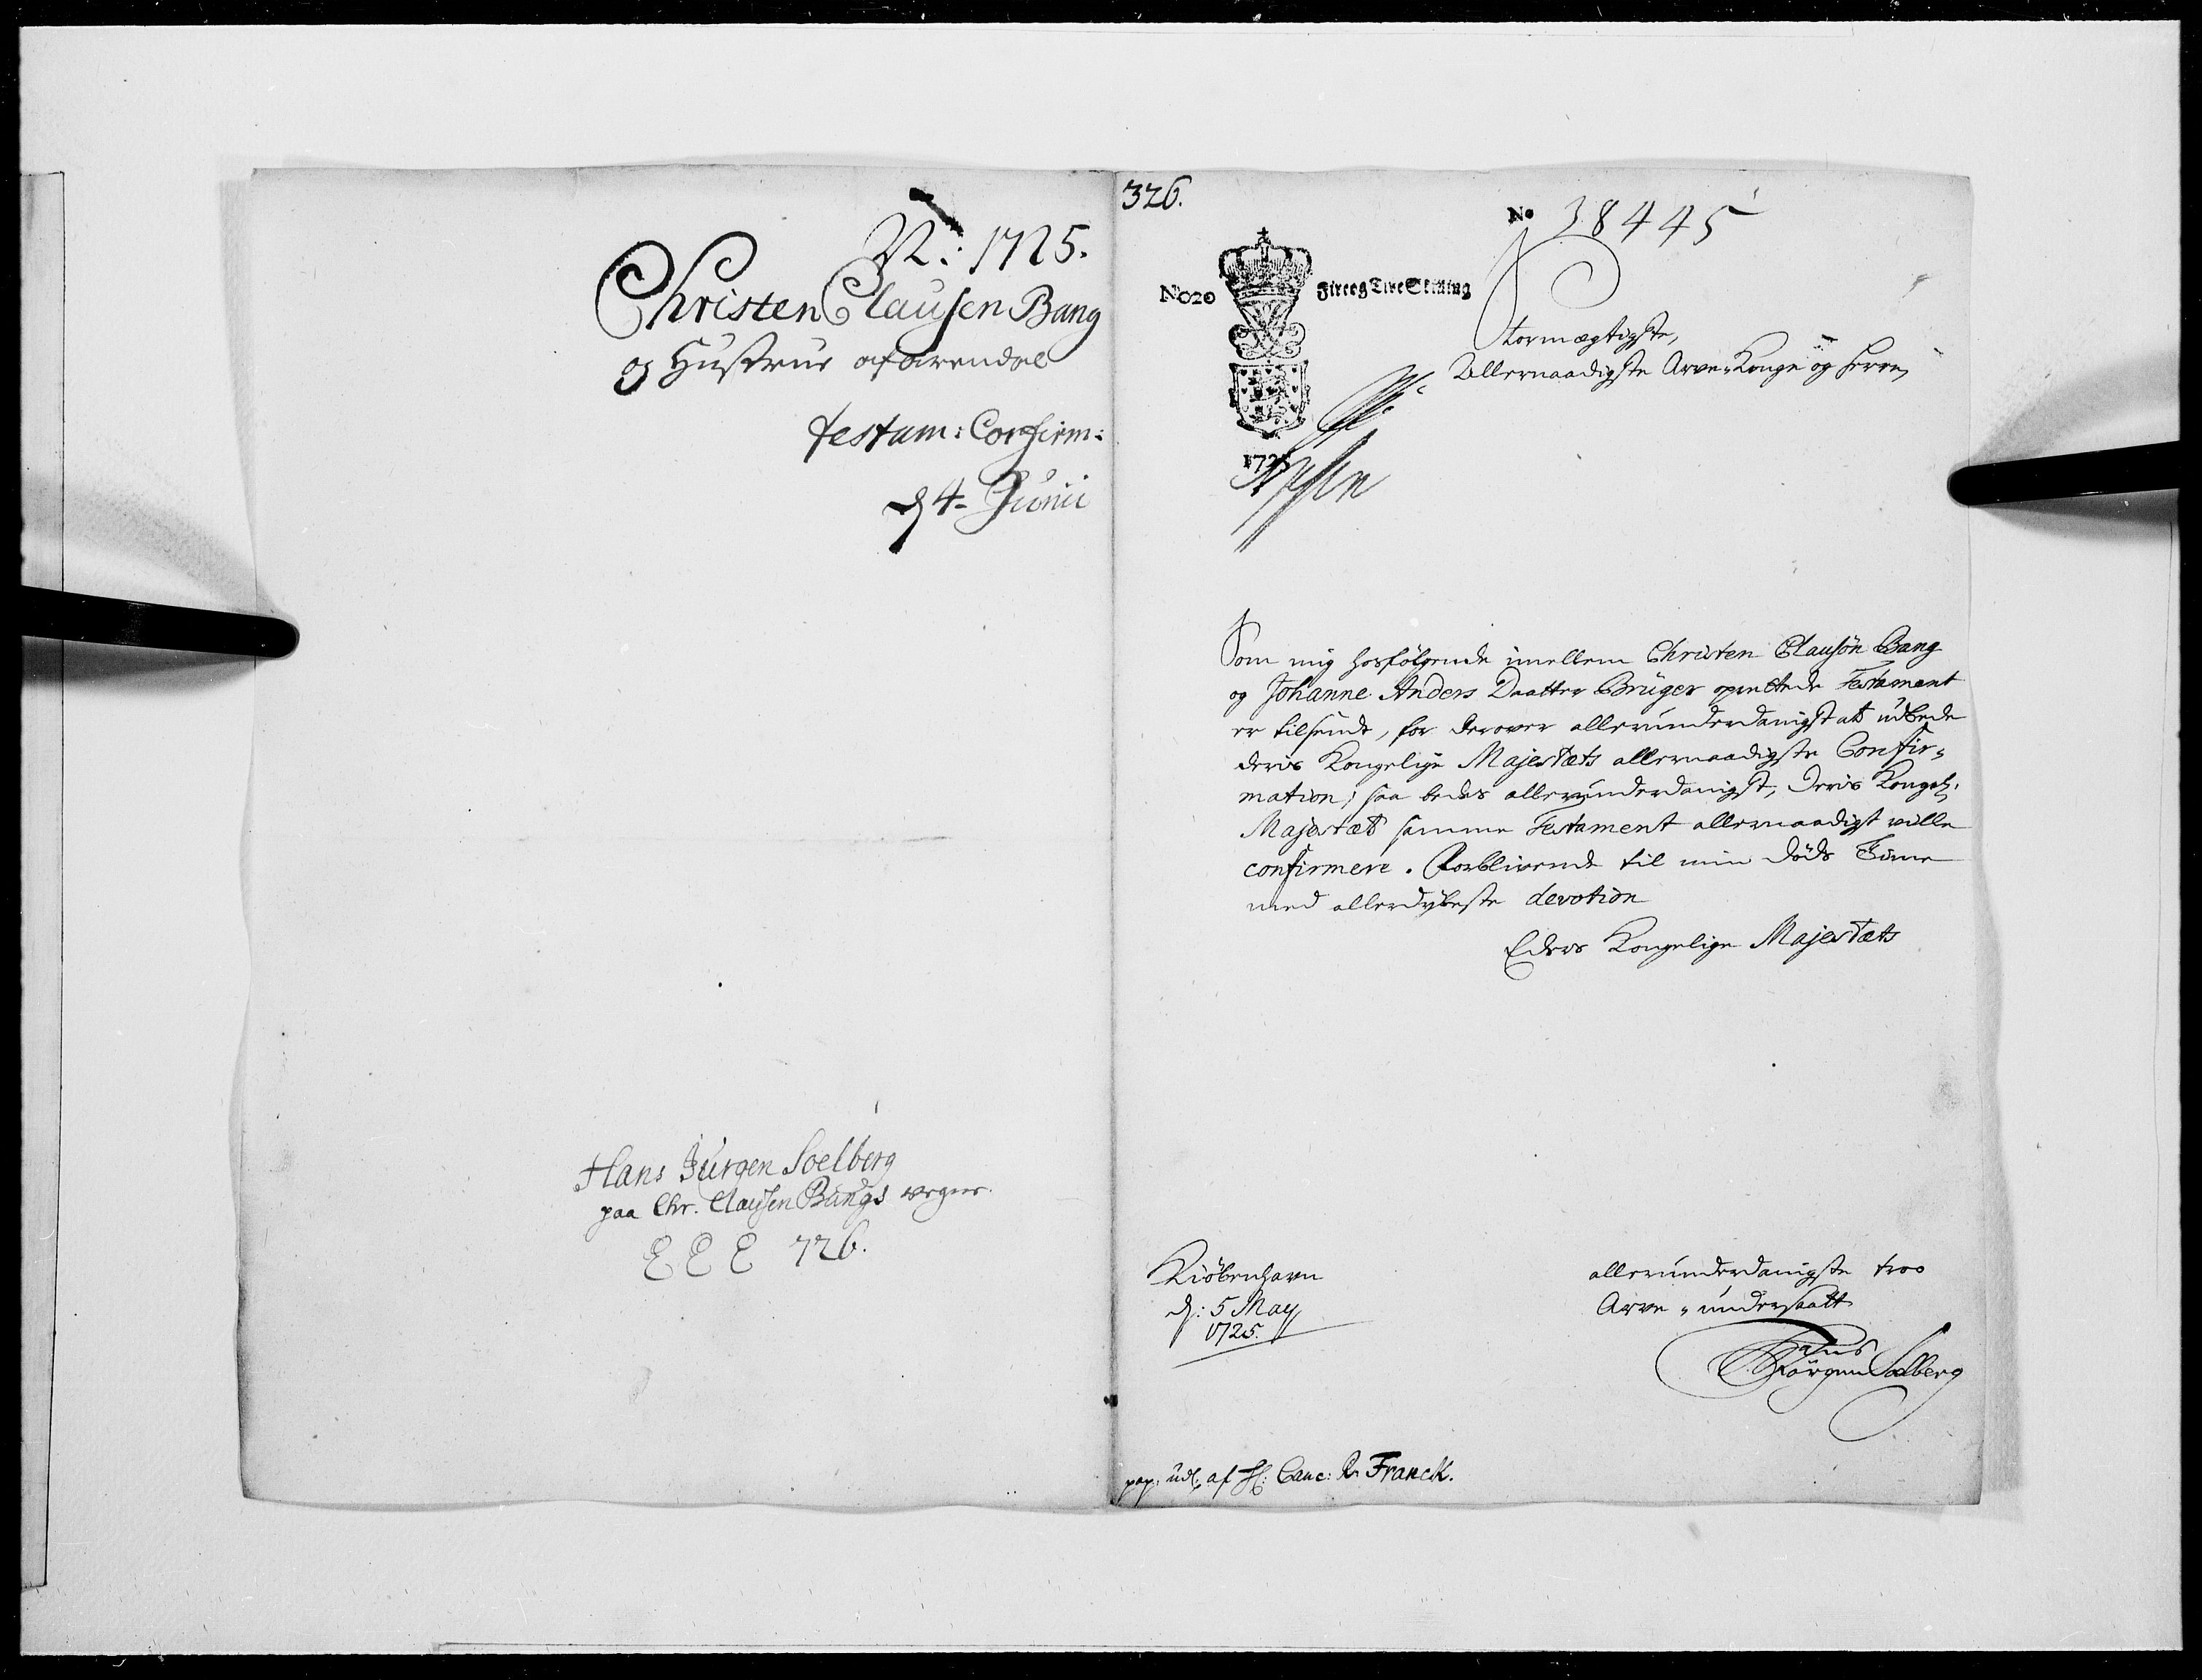 N: 1725.
Christen Clausen Bang
og Hustrue af Arendal
testam: Confirm:
d 4 Junii
Hans Jürgen Soelberg
paa Chr. Clausen Bangs vegne.
E E E 726.
326.
No 38445
No 20 Fire og Tive Skilling
1725
Stormægtigste,
Allernaadigste Arve-Konge og Herre,
Som mig hosfølgende imellem Christen Clausøn Bang
og Johanne Anders Daatter Brüger oprettede Testament
er tilsendt, for derover allerunderdanigst at udbede
deris Kongelige Majestæts allernaadigste Confir-
mation; saa bedes allerunderdanigst, Deris Kongel:
Majestæt samme Testament allernaadigst ville
confirmere. Forblivende til min døds Time
med allerdybeste devotion
Eders Kongelige Majestæts
Kiøbenhavn
d: 5 May
1725.
allerunderdanigste troe
Arve-undersaatt
Hans
Jörgen Soelberg
pap: ud: af H: Canc: R: Franck.